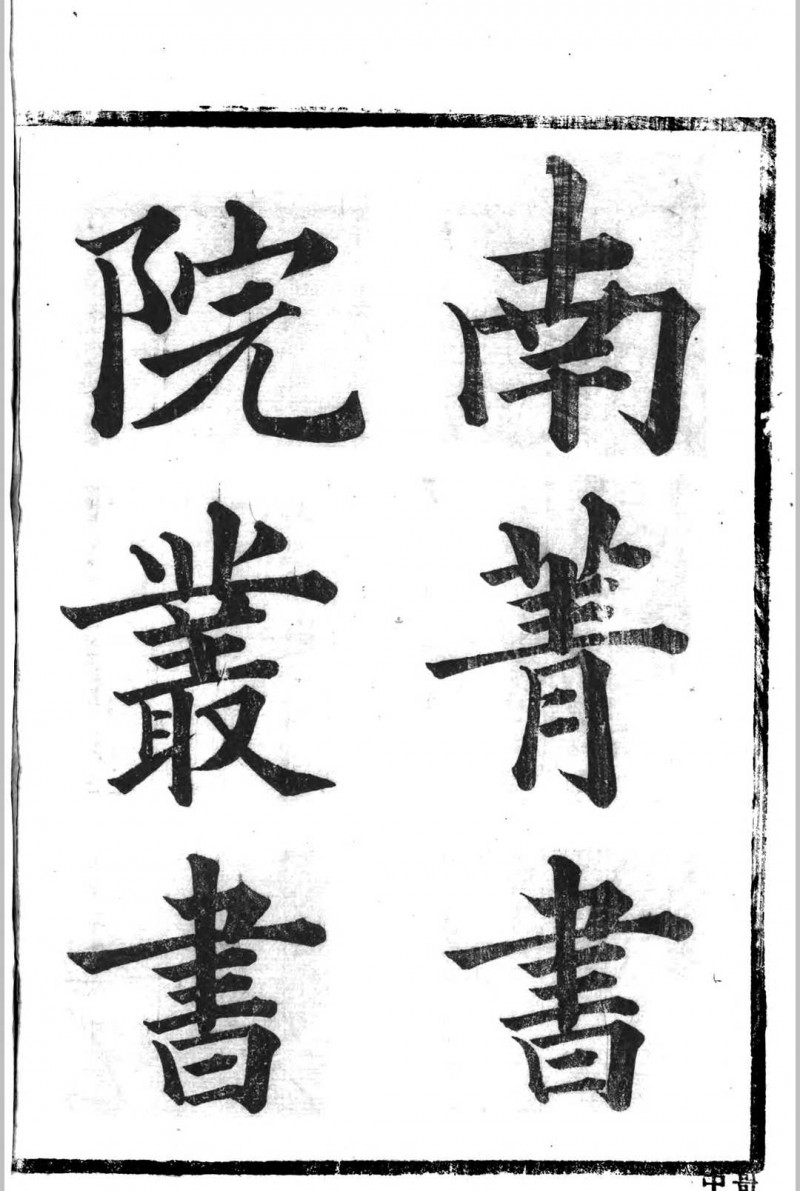 南菁書
院叢書